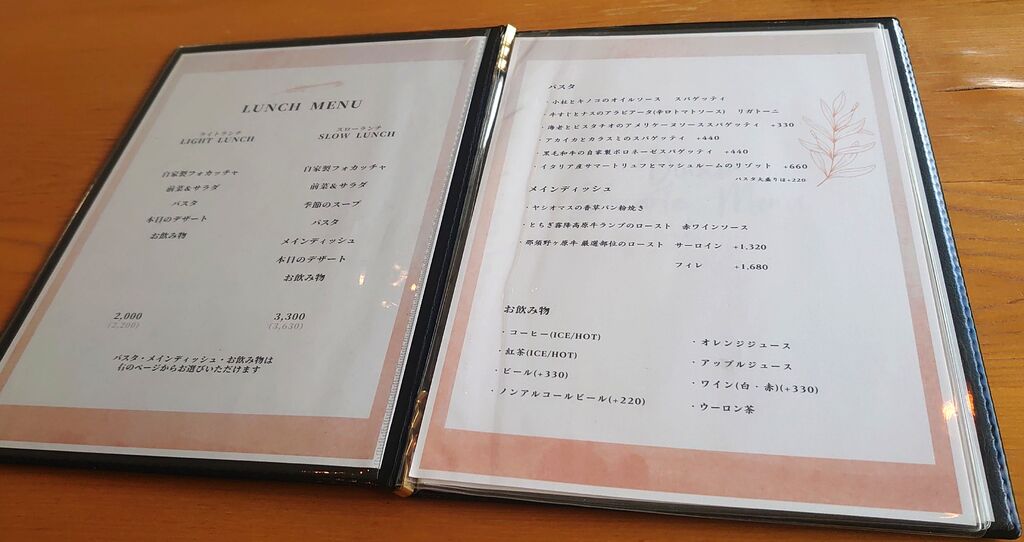 LUNCH MENU
ライトランチ
LIGHT LUNCH
自家製フォカッチャ
前菜&サラダ
パスタ
本日のデザート
お飲み物
2,000
(2,200)
スローランチ
SLOW LUNCH
自家製フォカッチャ
前菜&サラダ
季節のスープ
パスタ
メインディッシュ
本日のデザート
お飲み物
3,300
(3,630)
パスタ・メインディッシュ・お飲み物は
右のページからお選びいただけます
パスタ
・小柱とキノコのオイルソース スパゲッティ
・牛すじとナスのアラビアータ(辛口トマトソース) リガトーニ
・海老とピスタチオのアメリケーヌソーススパゲッティ +330
・アカイカとカラスミのスパゲッティ +440
・黒毛和牛の自家製ボロネーゼスパゲッティ +440
・イタリア産サマートリュフとマッシュルームのリゾット +660
パスタ大盛りは+220
メインディッシュ
・ヤシオマスの香草パン粉焼き
・とちぎ霧降高原牛ランプのロースト 赤ワインソース
・那須野ヶ原牛 厳選部位のロースト サーロイン +1,320
フィレ +1,680
お飲み物
・コーヒー(ICE/HOT)
・紅茶(ICE/HOT)
・ビール(+330)
・ノンアルコールビール(+220)
・オレンジジュース
・アップルジュース
・ワイン(白・赤)(+330)
・ウーロン茶